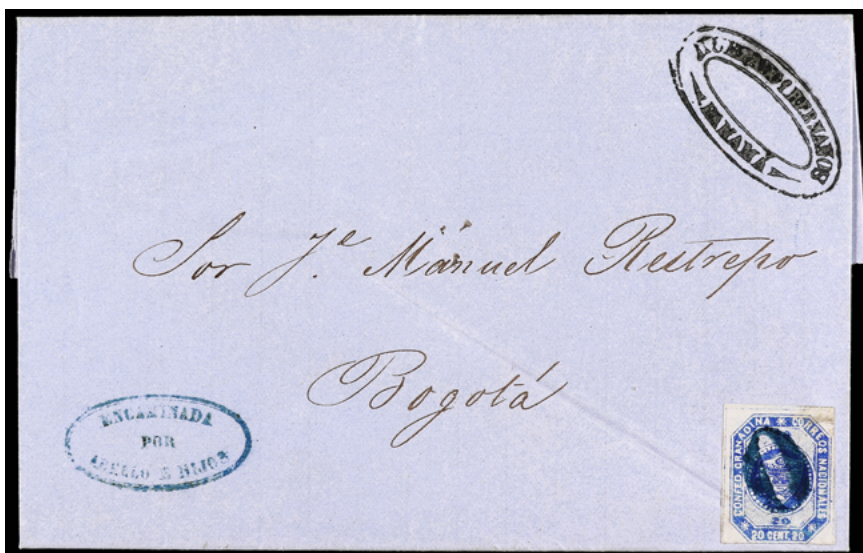 HURTADO HERMANOS
PANAMA
Sor J.e Manuel Restrepo
Bogotá
ENCAMINADA
POR
ABELLO E HIJOS
CONFED. GRANADINA
CORREOS NACIONALES
20
20 CENT. 20